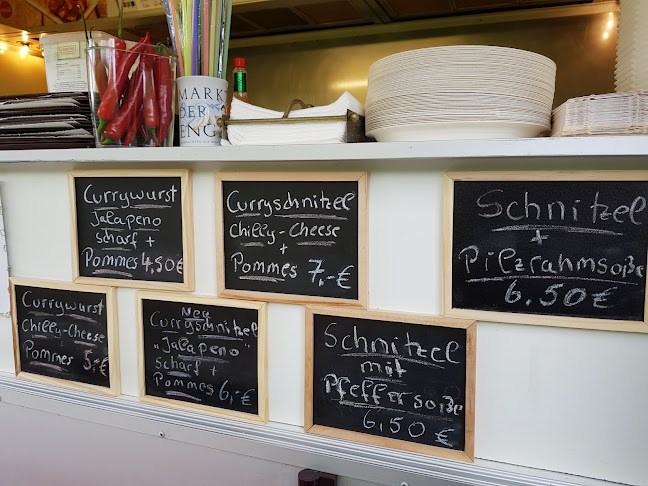 MARK
DER
ENG
Currywurst
Jalapeno
scharf +
Pommes 4,50€
Curryschnitzel
Chilly-Cheese
+
Pommes 7,-€
Schnitzel
+
Pilzrahmsoße
6,50€
Currywurst
Chilly-Cheese
Pommes 5,-€
Neu
Curryschnitzel
"Jalapeno"
Scharf +
Pommes 6,-€
Schnitzel
mit
Pfeffersoße
6,50 €